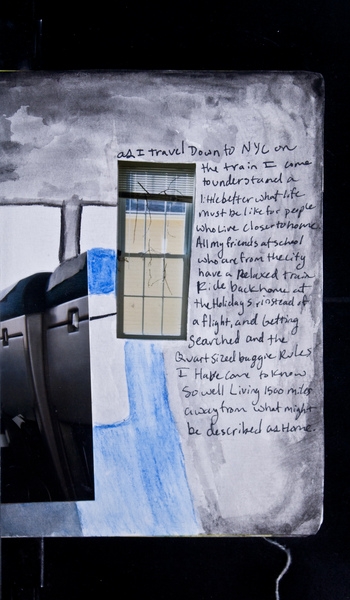 as I travel Down to NYC on
the train I come
to understand a
little better what life
must be like for people
who live closer to home.
All my friends at school
who are from the city
have a Relaxed train
Ride back home at
the Holidays instead of
a flight, and Getting
Searched and the
Quart sized baggie Rules
I Have come to know
So well Living 1500 miles
away from what might
be described as Home.